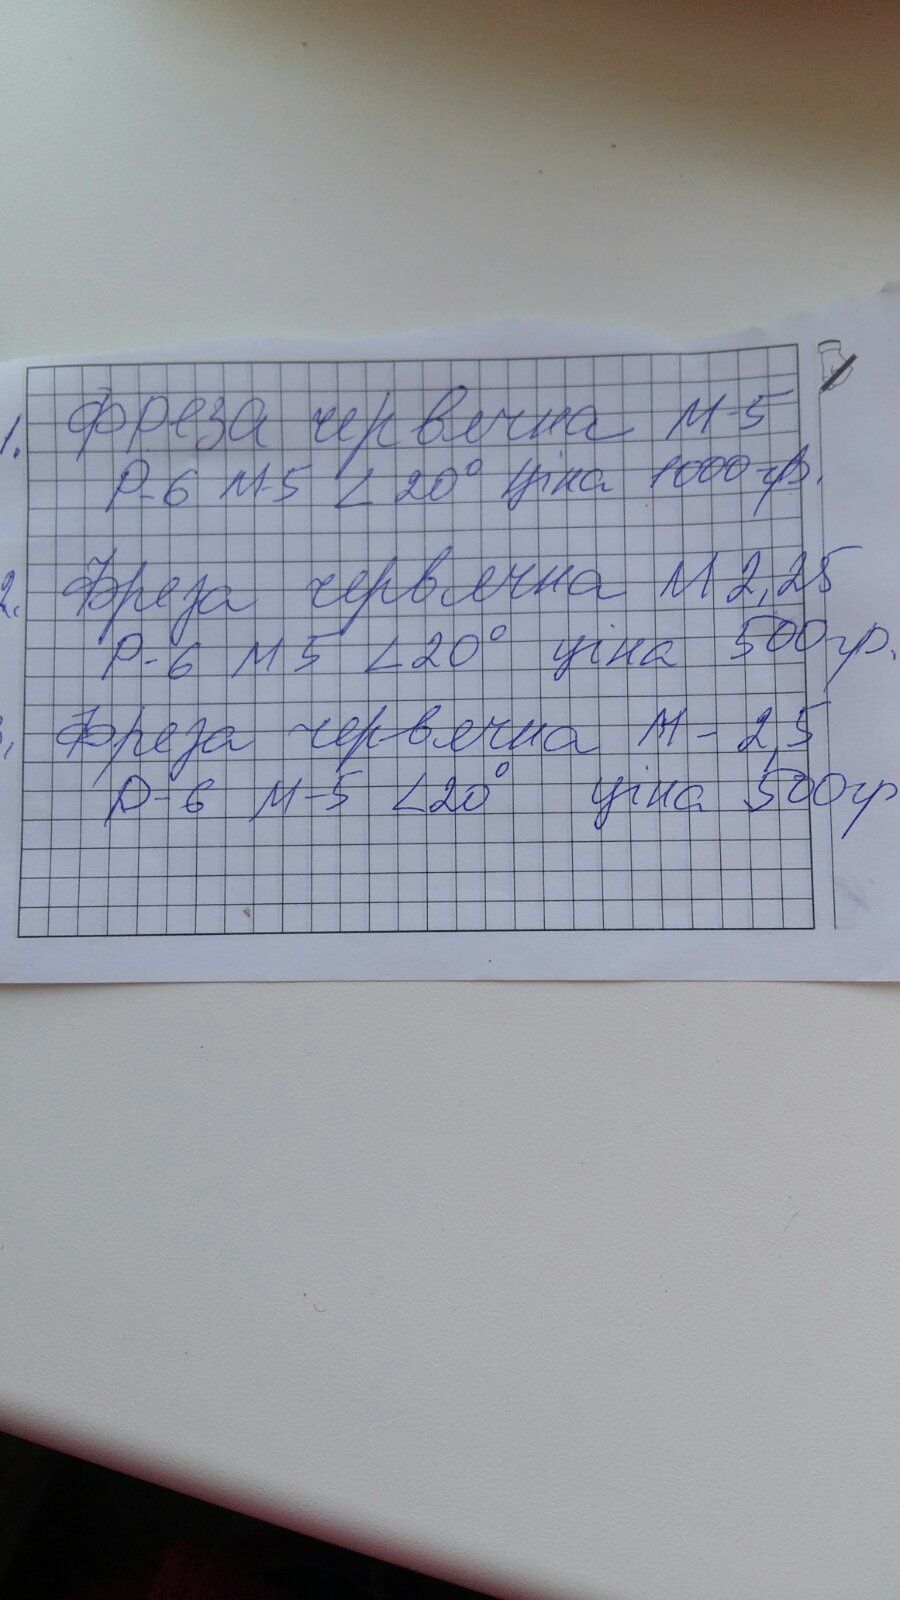 1. Фреза червячна М-5
Р-6 М-5 <20° ціна 1000 гр.
2. Фреза червячна М 2,25
Р-6 М 5 <20° ціна 500 гр.
3. Фреза червячна М-2,5
Р-6 М-5 <20° ціна 500 гр